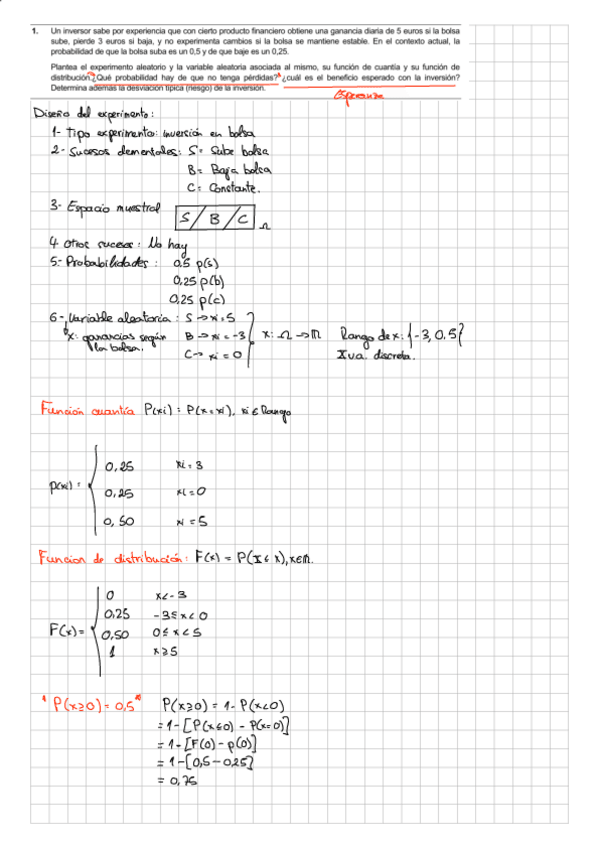 1. Un inversor sabe por experiencia que con cierto producto financiero obtiene una ganancia diaria de 5 euros si la bolsa
sube, pierde 3 euros si baja, y no experimenta cambios si la bolsa se mantiene estable. En el contexto actual, la
probabilidad de que la bolsa suba es un 0,5 y de que baje es un 0,25.
Plantea el experimento aleatorio y la variable aleatoria asociada al mismo, su función de cuantía y su función de
distribución ¿Qué probabilidad hay de que no tenga pérdidas? ¿cuál es el beneficio esperado con la inversión?
Determina además la desviación típica (riesgo) de la inversión.
Esperanza
Diseño del experimento:
1- Tipo experimento: inversión en bolsa
2- Sucesos elementales: S = Sube bolsa
B = Baja bolsa
C = Constante.
3- Espacio muestral S / B / C Ω
4- Otros sucesos: No hay
5- Probabilidades: 0,5 p(s)
0,25 p(b)
0,25 p(c)
6- Variable aleatoria: S → xi = 5
X: ganancias según la bolsa. B → xi = -3 } X: Ω → ℝ Rango de x: {-3, 0, 5}
C → xi = 0 X va. discreta.
Función cuantía P(xi) = P(X = xi), xi ∈ Rango
p(xi) = { 0,25 xi = 3
0,25 xi = 0
0,50 xi = 5
Funcion de distribución: F(x) = P(X ≤ x), x ∈ ℝ.
F(x) = { 0 x < -3
0,25 -3 ≤ x < 0
0,50 0 ≤ x < 5
1 x ≥ 5
" P(x ≥ 0) = 0,5 " P(x ≥ 0) = 1 - P(x < 0)
= 1 - [P(x ≤ 0) - P(x = 0)]
= 1 - [F(0) - p(0)]
= 1 - [0,5 - 0,25]
= 0,75